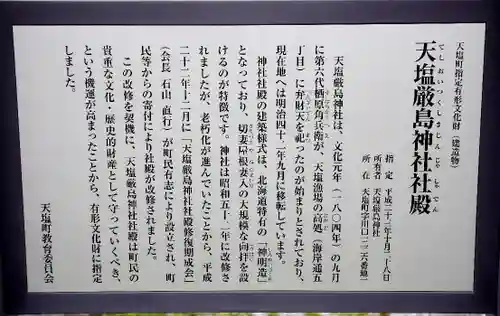 天塩町指定有形文化財(建造物)
てしおいつくしまじんじゃしゃでん
天塩厳島神社社殿
指定 平成二十三年十月二十八日
所有者 天塩厳島神社
所在 天塩町字川口
天塩厳島神社は、文化元年(一八〇四年)の九月
に第六代栖原角兵衛が、天塩漁場の高処(海岸通五
丁目)に弁財天を祀ったのが始まりとされており、
現在地へは明治四十二年九月に移転しています。
神社社殿の建築様式は、北海道特有の「神明造」
となっており、切妻屋根妻入の大規模な向拝を設
けるのが特徴です。神社は昭和五十二年に改修さ
れましたが、老朽化が進んでいたことから、平成
二十二年十二月に「天塩厳島神社社殿修復期成会」
(会長 石山 直行)が町民有志により設立され、町
民等からの寄付により社殿が改修されました。
この改修を契機に、天塩厳島神社社殿は町民の
貴重な文化・歴史的財産として守っていくべき、
という機運が高まったことから、有形文化財に指定
しました。
天塩町教育委員会